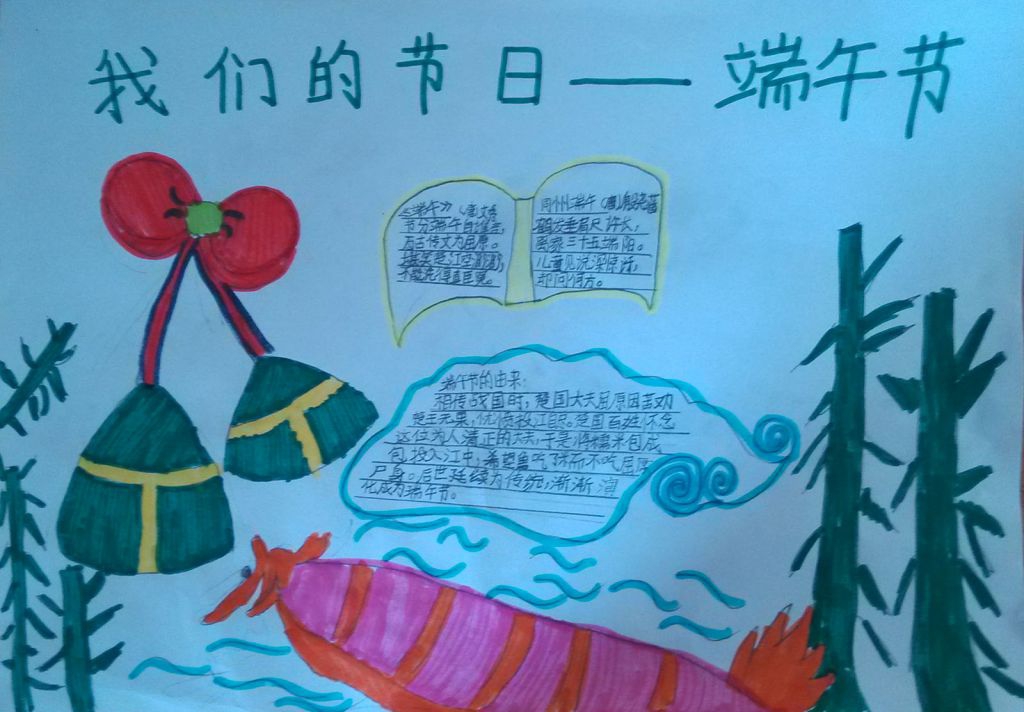 我们的节日——端午节
端午 (唐)文秀
节分端午自谁言,
万古传文为屈原。
堪笑楚江空渺渺,
不能洗得直臣冤。
同州端午 (唐)殷尧藩
鹤发垂肩尺许长,
离家三十五端阳。
儿童见说深惊讶,
却问何方。
端午节的由来:
相传战国时,楚国大夫屈原因苦劝
楚王无果,忧愤投江自尽。楚国百姓怀念
这位为人清正的大夫,于是将糯米包成
包投入江中,希望鱼吃了米而不吃屈原
尸身。后世延续为传统,渐渐演
化成为端午节。